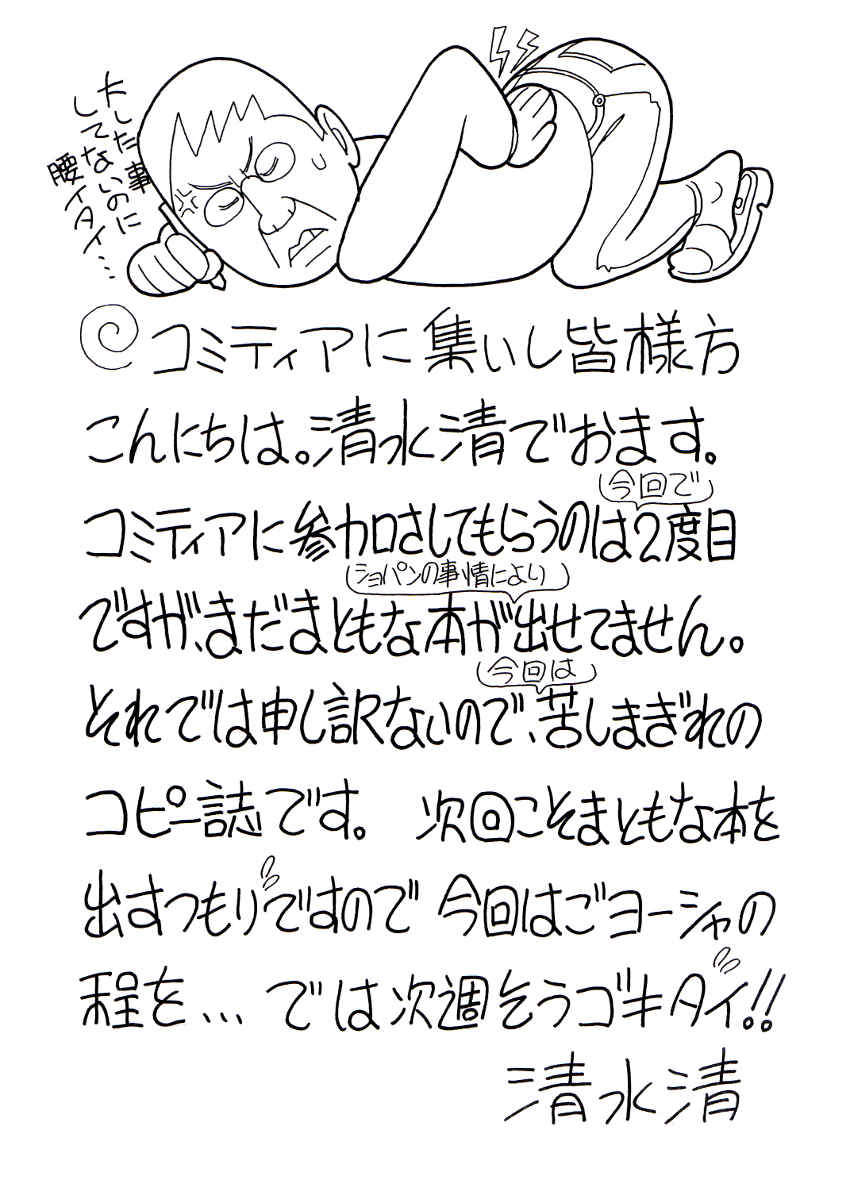 大した事
してないのに
腰イタイ…
コミティアに集いし皆様方
こんにちは。清水清でおます。
今回で
コミティアに参加させてもらうのは2度目
ショパンの事情により
ですが、まだまともな本が出せてません。
今回は
それでは申し訳ないので、苦しまぎれの
コピー誌です。 次回こそまともな本を
出すつもりですので 今回はごヨーシャの
程を... では次週そうゴキタイ!!
清水清